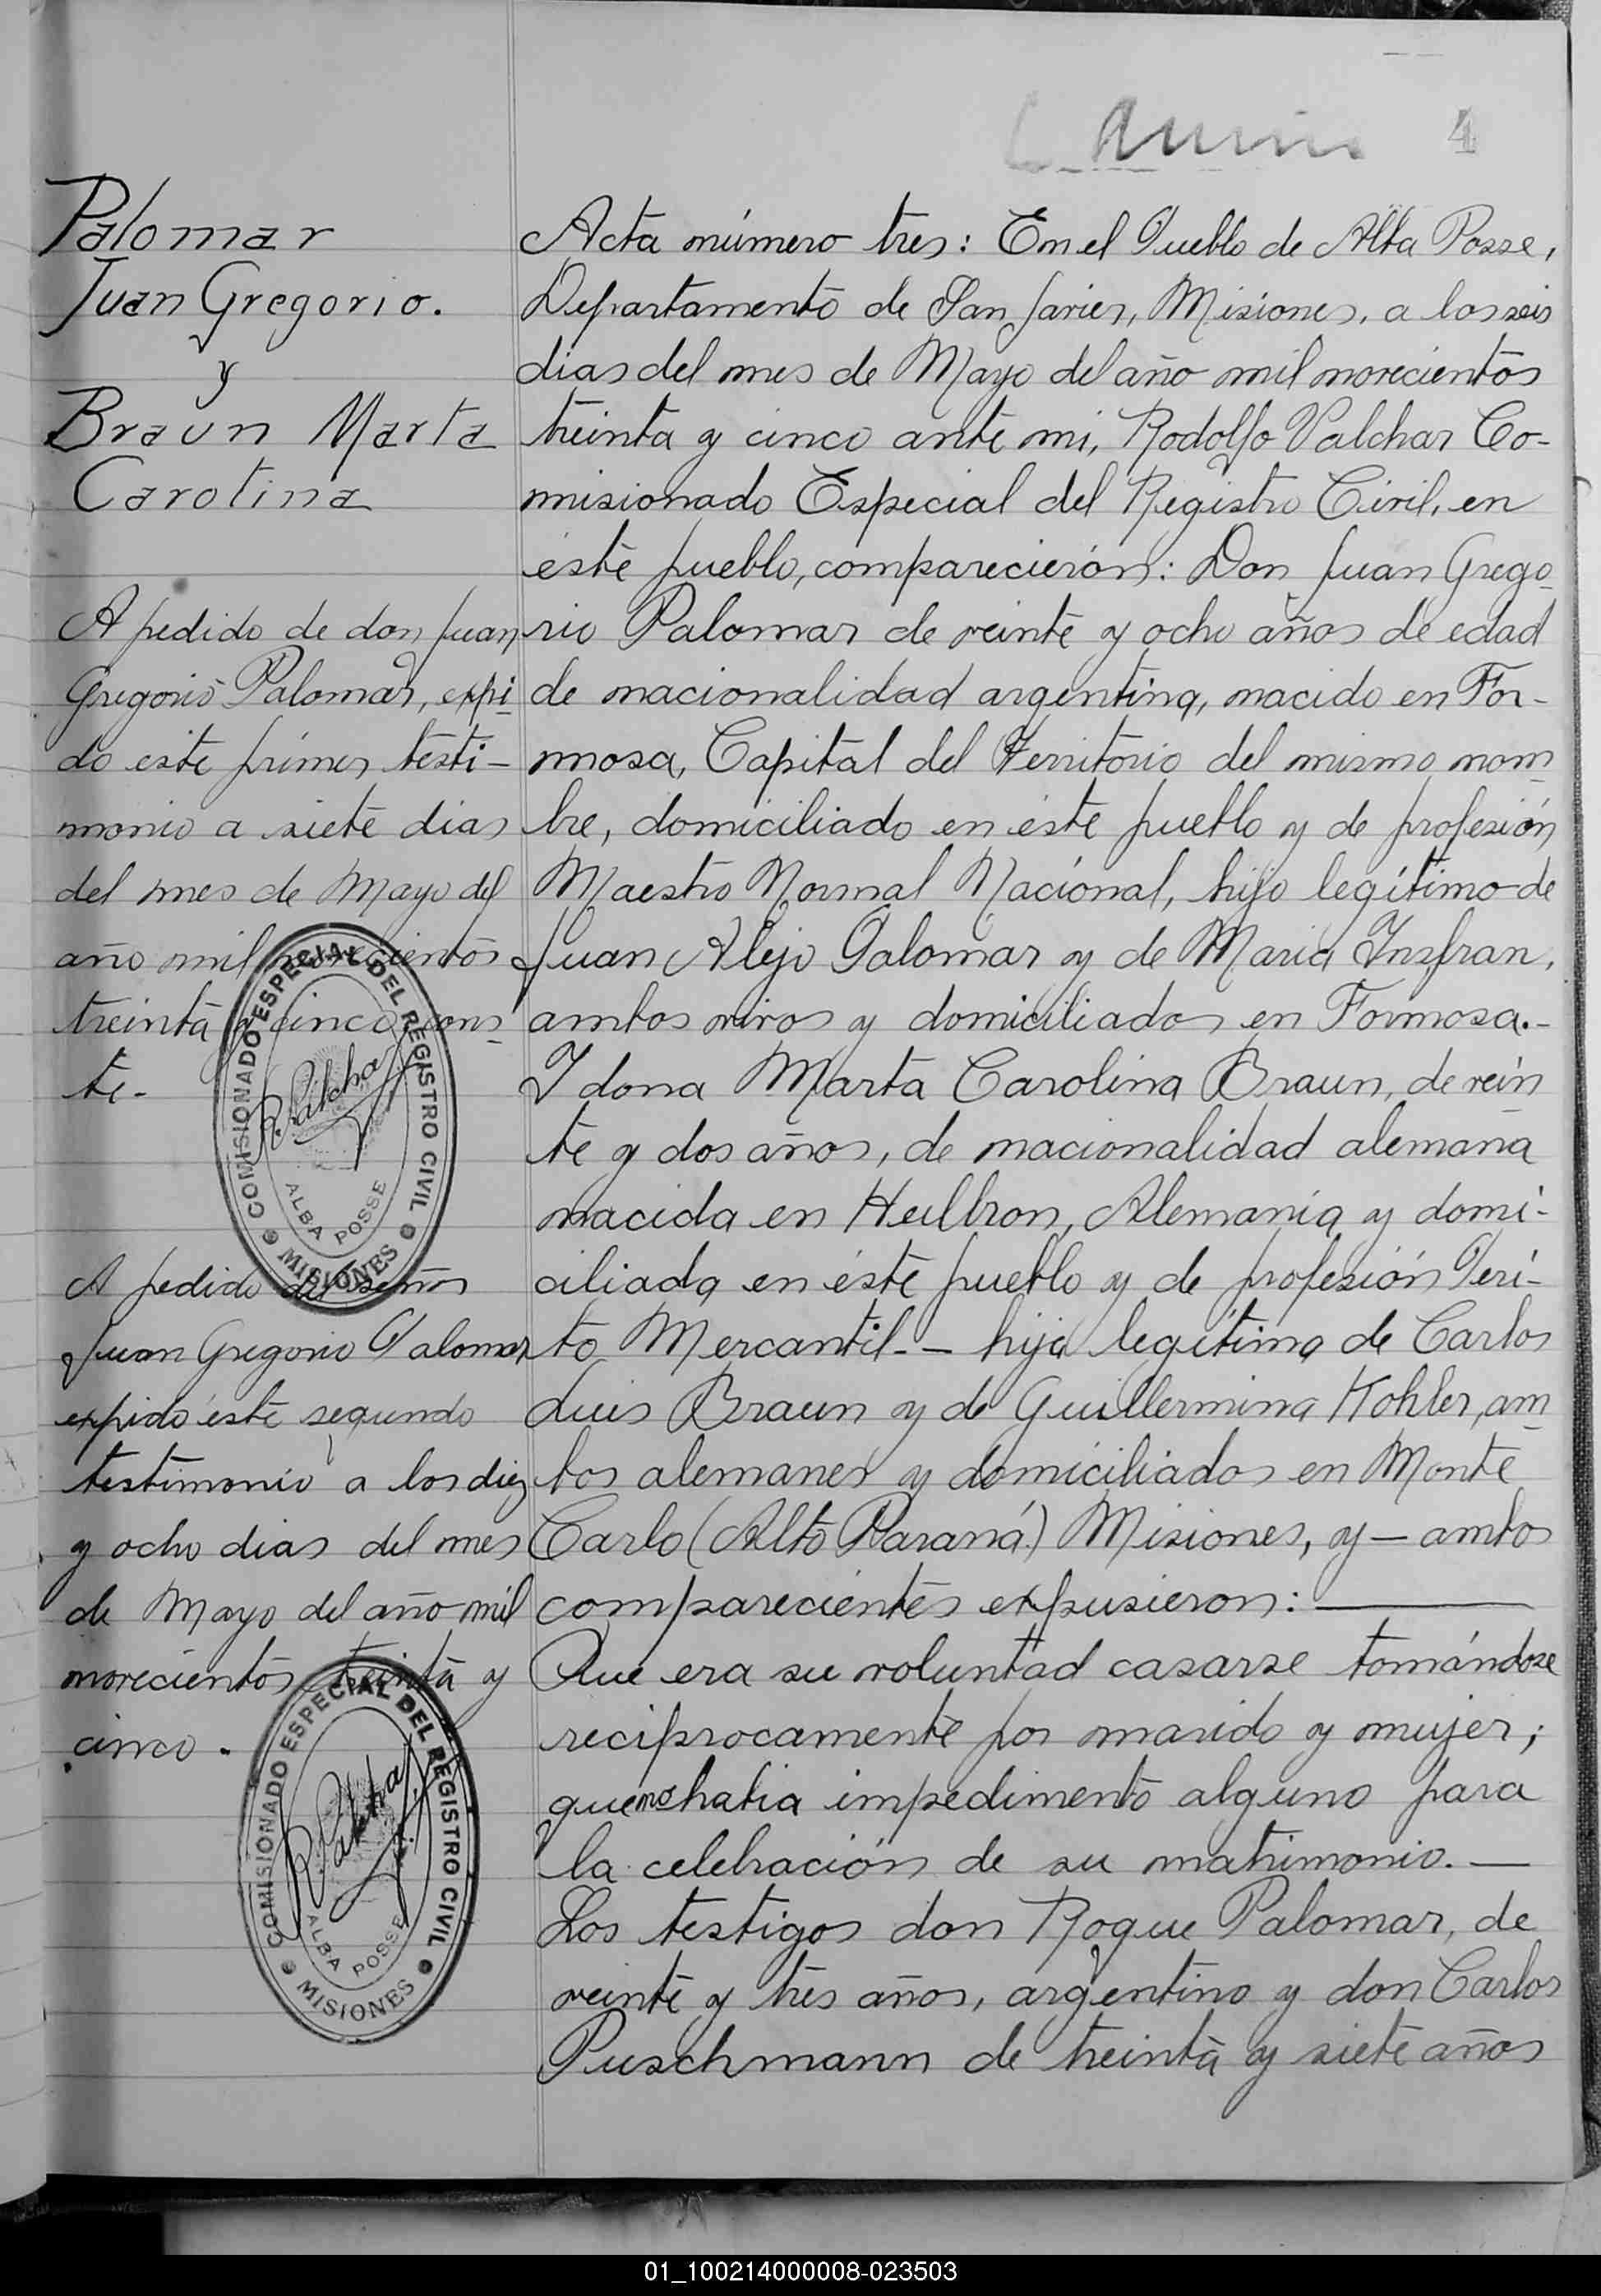 4
Palomar
Juan Gregorio.
y
Braun Marta
Carolina
A pedido de don Juan
Gregorio Palomar, expi-
do este primer testi-
monio a siete dias
del mes de Mayo del
año mil novecientos
treinta y cinco, cons-
te.-
COMISIONADO ESPECIAL DEL REGISTRO CIVIL
ALBA POSSE
MISIONES
A pedido del señor
Juan Gregorio Palomar
expido éste segundo
testimonio a los diez
y ocho dias del mes
de Mayo del año mil
novecientos treinta y
cinco.
COMISIONADO ESPECIAL DEL REGISTRO CIVIL
ALBA POSSE
MISIONES
Acta número tres: En el Pueblo de Alba Posse,
Departamento de San Javier, Misiones, a los seis
dias del mes de Mayo del año mil novecientos
treinta y cinco ante mi, Rodolfo Valchar Co-
misionado Especial del Registro Civil, en
éste pueblo, comparecierón: Don Juan Grego-
rio Palomar de veinte y ocho años de edad
de nacionalidad argentina, nacido en For-
mosa, Capital del Territorio del mismo nom-
bre, domiciliado en éste pueblo y de profesión
Maestro Normal Nacional, hijo legítimo de
Juan Alejo Palomar y de Maria Insfran,
ambos vivos y domiciliados en Formosa.-
I dona Marta Carolina Braun, de vein-
te y dos años, de nacionalidad alemana
nacida en Heilbron, Alemania y domi-
ciliada en éste pueblo y de profesión Peri-
to Mercantil.- - hija legítima de Carlos
Luis Braun y de Guillermina Kohler, am-
bos alemanes y domiciliados en Monte
Carlo (Alto Paraná) Misiones, y - ambos
comparecientes expusieron: -
Que era su voluntad casarse tomándose
reciprocamente por marido y mujer;
que no habia impedimento alguno para
la celebración de su matrimonio. -
Los testigos don Roque Palomar, de
veinte y tres años, argentino y don Carlos
Puschmann de treinta y siete años
01_100214000008-023503